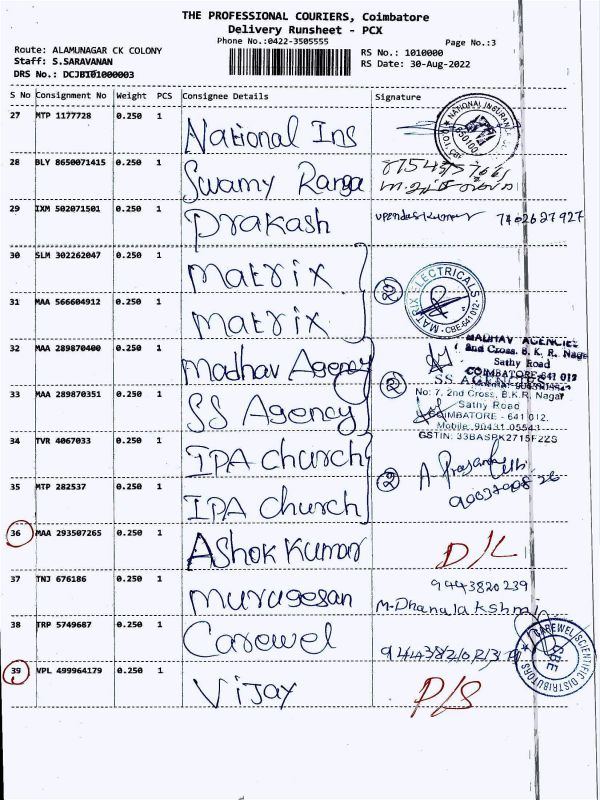 THE PROFESSIONAL COURIERS, Coimbatore
Delivery Runsheet - PCX
Phone No.:0422-3505555
Page No.:3
Route: ALAMUNAGAR CK COLONY
RS No.: 1010000
Staff: S.SARAVANAN
RS Date: 30-Aug-2022
DRS No.: DCJB101000003
S No Consignment No Weight PCS Consignee Details Signature
27 MTP 1177728 0.250 1 National Ins
NATIONAL INSURANCE
28 BLY 8650071415 0.250 1 Swamy Ranga
29 IXM 502071501 0.250 1 Prakash upendarkumar 7402627927
30 SLM 302262047 0.250 1 Matrix
31 MAA 566604912 0.250 1 Matrix
2
MATRIX ELECTRICALS
CBE-641 012
32 MAA 289870400 0.250 1 Madhav Agency
MADHAV AGENCIES
2nd Cross, B. K. R. Naga
Sathy Road
COIMBATORE-641 012
33 MAA 289870351 0.250 1 SS Agency
2
SS AGENCIES
No: 7, 2nd Cross, B.K.R. Nagar
Sathy Road
COIMBATORE - 641 012.
Mobile: 90431 05543
GSTIN: 33BASPK2715F2ZS
34 TVR 4067033 0.250 1 IPA church
35 MTP 282537 0.250 1 IPA church
2
36 MAA 293507265 0.250 1 Ashok Kumar D/L
37 TNJ 676186 0.250 1 Murugesan
9443820239
M-Dhanalakshmi
38 TRP 5749687 0.250 1 Carewel
CAREWEL SCIENTIFIC DISTRIBUTORS
CBE
39 VPL 499964179 0.250 1 Vijay P/S